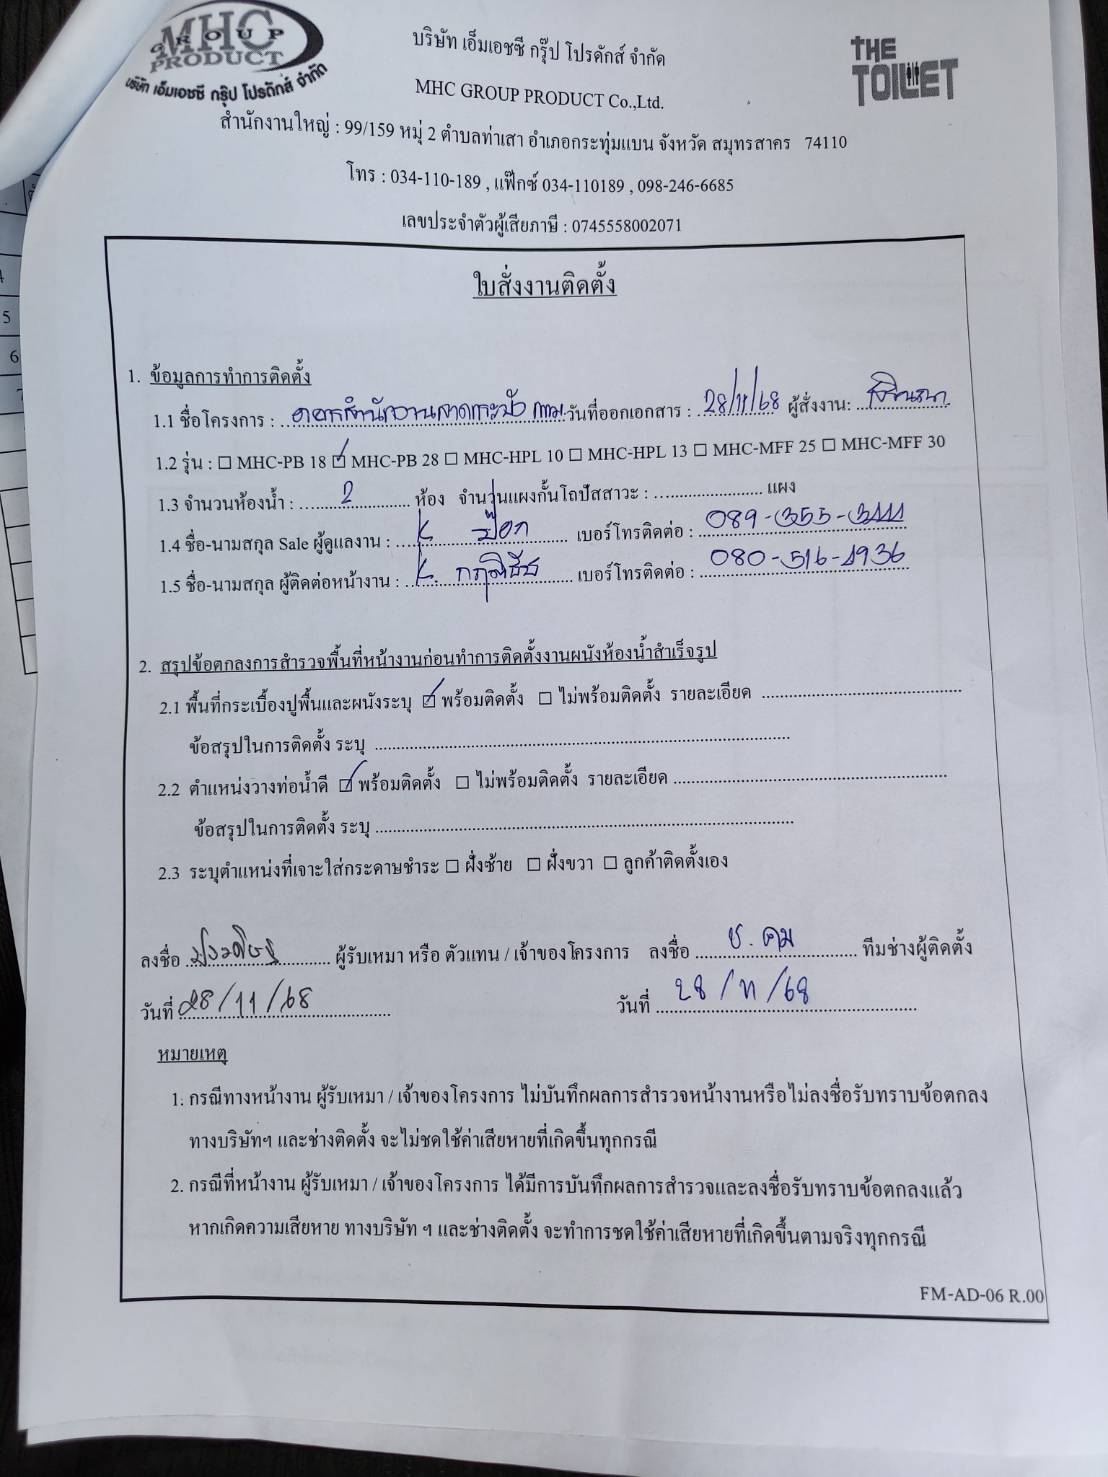 MHC
GROUP
PRODUCT
บริษัท เอ็มเอชซี กรุ๊ป โปรดักส์ จำกัด
THE
TOILET
บริษัท เอ็มเอชซี กรุ๊ป โปรดักส์ จำกัด
MHC GROUP PRODUCT Co.,Ltd.
สำนักงานใหญ่ : 99/159 หมู่ 2 ตำบลท่าเสา อำเภอกระทุ่มแบน จังหวัด สมุทรสาคร 74110
โทร : 034-110-189 , แฟ๊กซ์ 034-110189 , 098-246-6685
เลขประจำตัวผู้เสียภาษี : 0745558002071
ใบสั่งงานติดตั้ง
1. ข้อมูลการทำการติดตั้ง
1.1 ชื่อโครงการ : อาคารสำนักงานลาดกระบัง กทม. วันที่ออกเอกสาร : 28/11/68 ผู้สั่งงาน:
1.2 รุ่น : ☐ MHC-PB 18 ☑ MHC-PB 28 ☐ MHC-HPL 10 ☐ MHC-HPL 13 ☐ MHC-MFF 25 ☐ MHC-MFF 30
1.3 จำนวนห้องน้ำ : 2 ห้อง จำนวนแผงกั้นโถปัสสาวะ : แผง
1.4 ชื่อ-นามสกุล Sale ผู้ดูแลงาน : K ป๊อก เบอร์โทรติดต่อ : 089-355-3111
1.5 ชื่อ-นามสกุล ผู้ติดต่อหน้างาน : K เบอร์โทรติดต่อ : 080-516-1936
2. สรุปข้อตกลงการสำรวจพื้นที่หน้างานก่อนทำการติดตั้งงานผนังห้องน้ำสำเร็จรูป
2.1 พื้นที่กระเบื้องปูพื้นและผนังระบุ ☑ พร้อมติดตั้ง ☐ ไม่พร้อมติดตั้ง รายละเอียด
ข้อสรุปในการติดตั้ง ระบุ
2.2 ตำแหน่งวางท่อน้ำดี ☑ พร้อมติดตั้ง ☐ ไม่พร้อมติดตั้ง รายละเอียด
ข้อสรุปในการติดตั้ง ระบุ
2.3 ระบุตำแหน่งที่เจาะใส่กระดาษชำระ ☐ ฝั่งซ้าย ☐ ฝั่งขวา ☐ ลูกค้าติดตั้งเอง
ลงชื่อ ผู้รับเหมา หรือ ตัวแทน / เจ้าของโครงการ ลงชื่อ ช. คม ทีมช่างผู้ติดตั้ง
วันที่ 28/11/68 วันที่ 28/11/68
หมายเหตุ
1. กรณีทางหน้างาน ผู้รับเหมา / เจ้าของโครงการ ไม่บันทึกผลการสำรวจหน้างานหรือไม่ลงชื่อรับทราบข้อตกลง
ทางบริษัทฯ และช่างติดตั้ง จะไม่ชดใช้ค่าเสียหายที่เกิดขึ้นทุกกรณี
2. กรณีที่หน้างาน ผู้รับเหมา / เจ้าของโครงการ ได้มีการบันทึกผลการสำรวจและลงชื่อรับทราบข้อตกลงแล้ว
หากเกิดความเสียหาย ทางบริษัท ฯ และช่างติดตั้ง จะทำการชดใช้ค่าเสียหายที่เกิดขึ้นตามจริงทุกกรณี
FM-AD-06 R.00
5
6